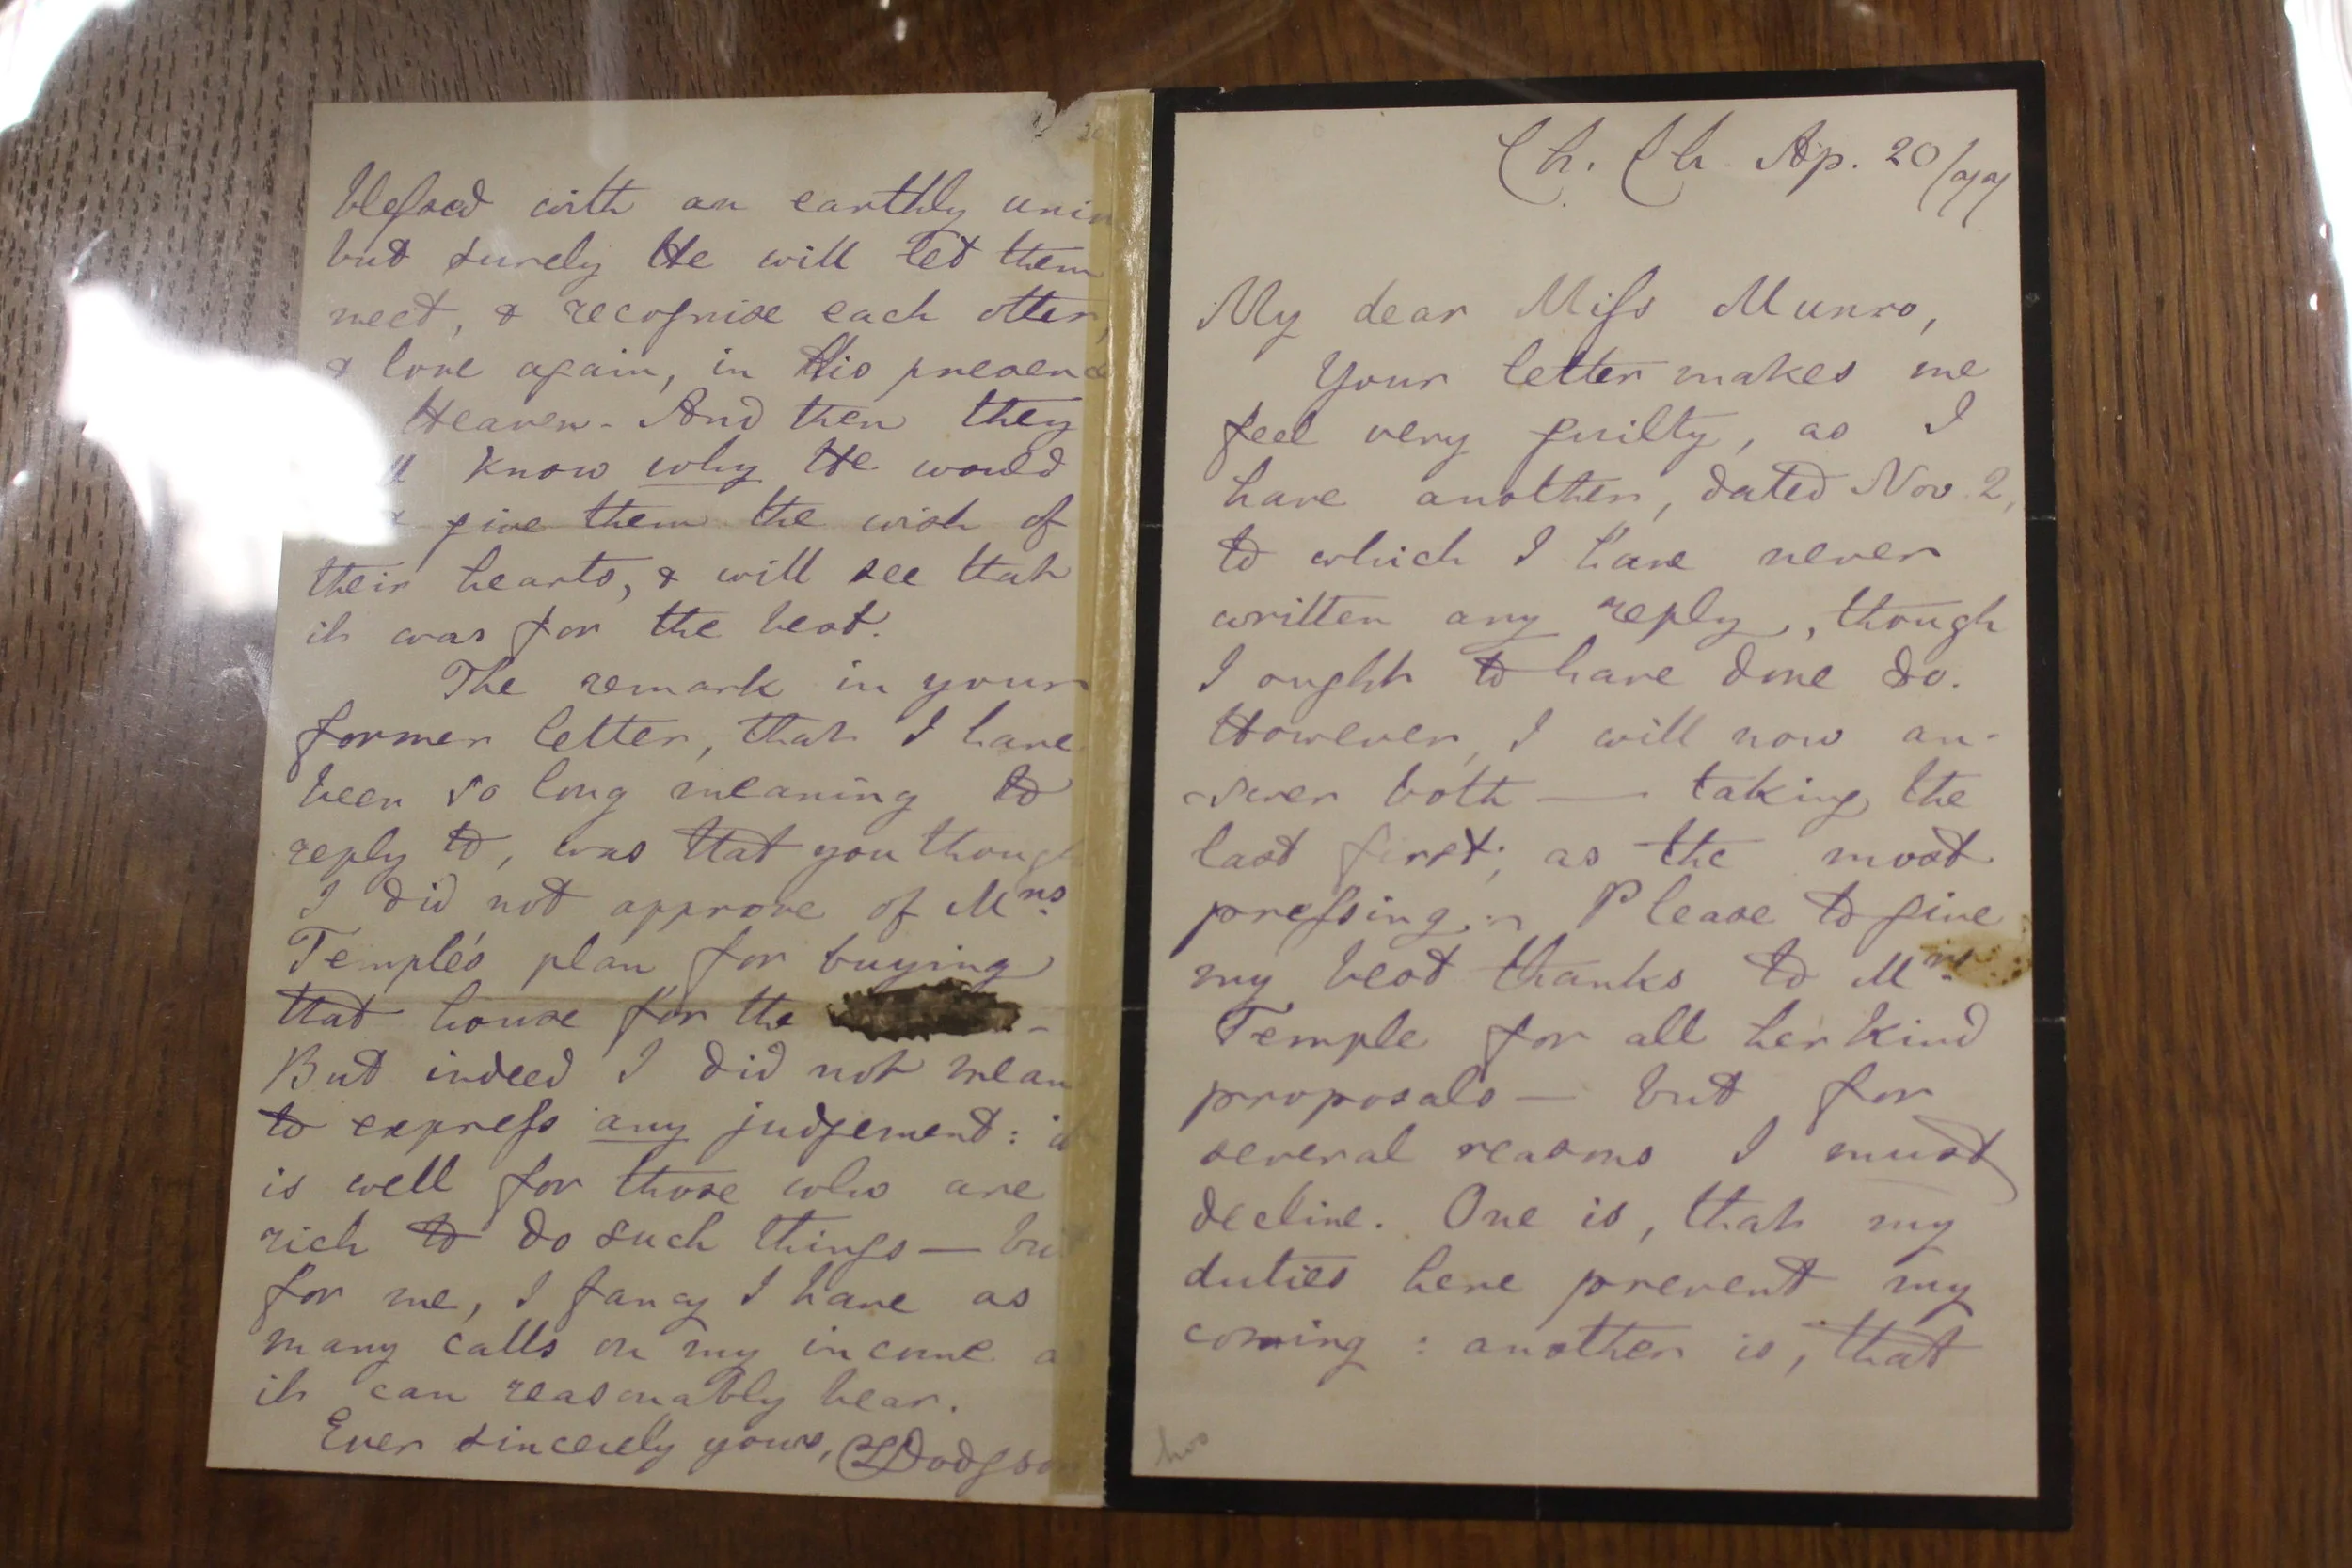 Ch. Ch Ap. 20/77
My dear Miss Munro,
Your letter makes me
feel very guilty, as I
have another, dated Nov. 2,
to which I have never
written any reply, though
I ought to have done so.
However, I will now an-
-swer both — taking the
last first, as the most
pressing. Please to give
my best thanks to Mrs.
Temple for all her kind
proposals — but for
several reasons I must
decline. One is, that my
duties here prevent my
coming: another is, that
blessed with an earthly
but surely He will let them
meet, & recognise each other,
& love again, in His
Heaven. And then they
know why He would
give them the wish of
their hearts, & will see that
it was for the best.
The remark in your
former letter, that I have
been so long meaning to
reply to, was that you
I did not approve of Mrs.
Temple's plan for buying
that house for the
But indeed I did not mean
to express any judgement:
is well for those who are
rich to do such things —
for me, I fancy I have as
many calls on my income
it can reasonably bear.
Ever sincerely yours, CLDodgson